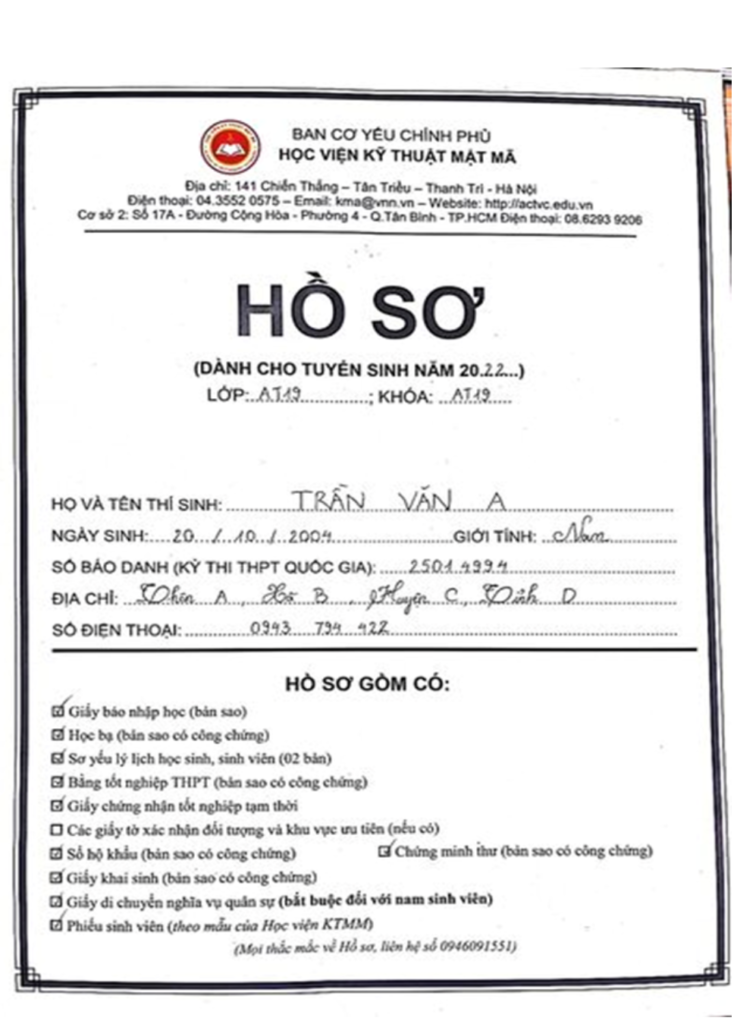 BAN CƠ YẾU CHÍNH PHỦ
HỌC VIỆN KỸ THUẬT MẬT MÃ
Địa chỉ: 141 Chiến Thắng – Tân Triều – Thanh Trì - Hà Nội
Điện thoại: 04.3552 0575 – Email: kma@vnn.vn – Website: http://actvc.edu.vn
Cơ sở 2: Số 17A - Đường Cộng Hòa - Phường 4 - Q.Tân Bình - TP.HCM Điện thoại: 08.6293 9206
HỒ SƠ
(DÀNH CHO TUYỂN SINH NĂM 20.22...)
LỚP: AT19 ; KHÓA: AT19
HỌ VÀ TÊN THÍ SINH: TRẦN VĂN A
NGÀY SINH: 20 / 10 / 2004 GIỚI TÍNH: Nam
SỐ BÁO DANH (KỲ THI THPT QUỐC GIA): 25014994
ĐỊA CHỈ: Thôn A, Xã B, Huyện C, Tỉnh D
SỐ ĐIỆN THOẠI: 0943 794 422
HỒ SƠ GỒM CÓ:
☑ Giấy báo nhập học (bản sao)
☑ Học bạ (bản sao có công chứng)
☑ Sơ yếu lý lịch học sinh, sinh viên (02 bản)
☑ Bằng tốt nghiệp THPT (bản sao có công chứng)
☑ Giấy chứng nhận tốt nghiệp tạm thời
☐ Các giấy tờ xác nhận đối tượng và khu vực ưu tiên (nếu có)
☑ Sổ hộ khẩu (bản sao có công chứng) ☑ Chứng minh thư (bản sao có công chứng)
☑ Giấy khai sinh (bản sao có công chứng)
☑ Giấy di chuyển nghĩa vụ quân sự (bắt buộc đối với nam sinh viên)
☑ Phiếu sinh viên (theo mẫu của Học viện KTMM)
(Mọi thắc mắc về Hồ sơ, liên hệ số 0946091551)